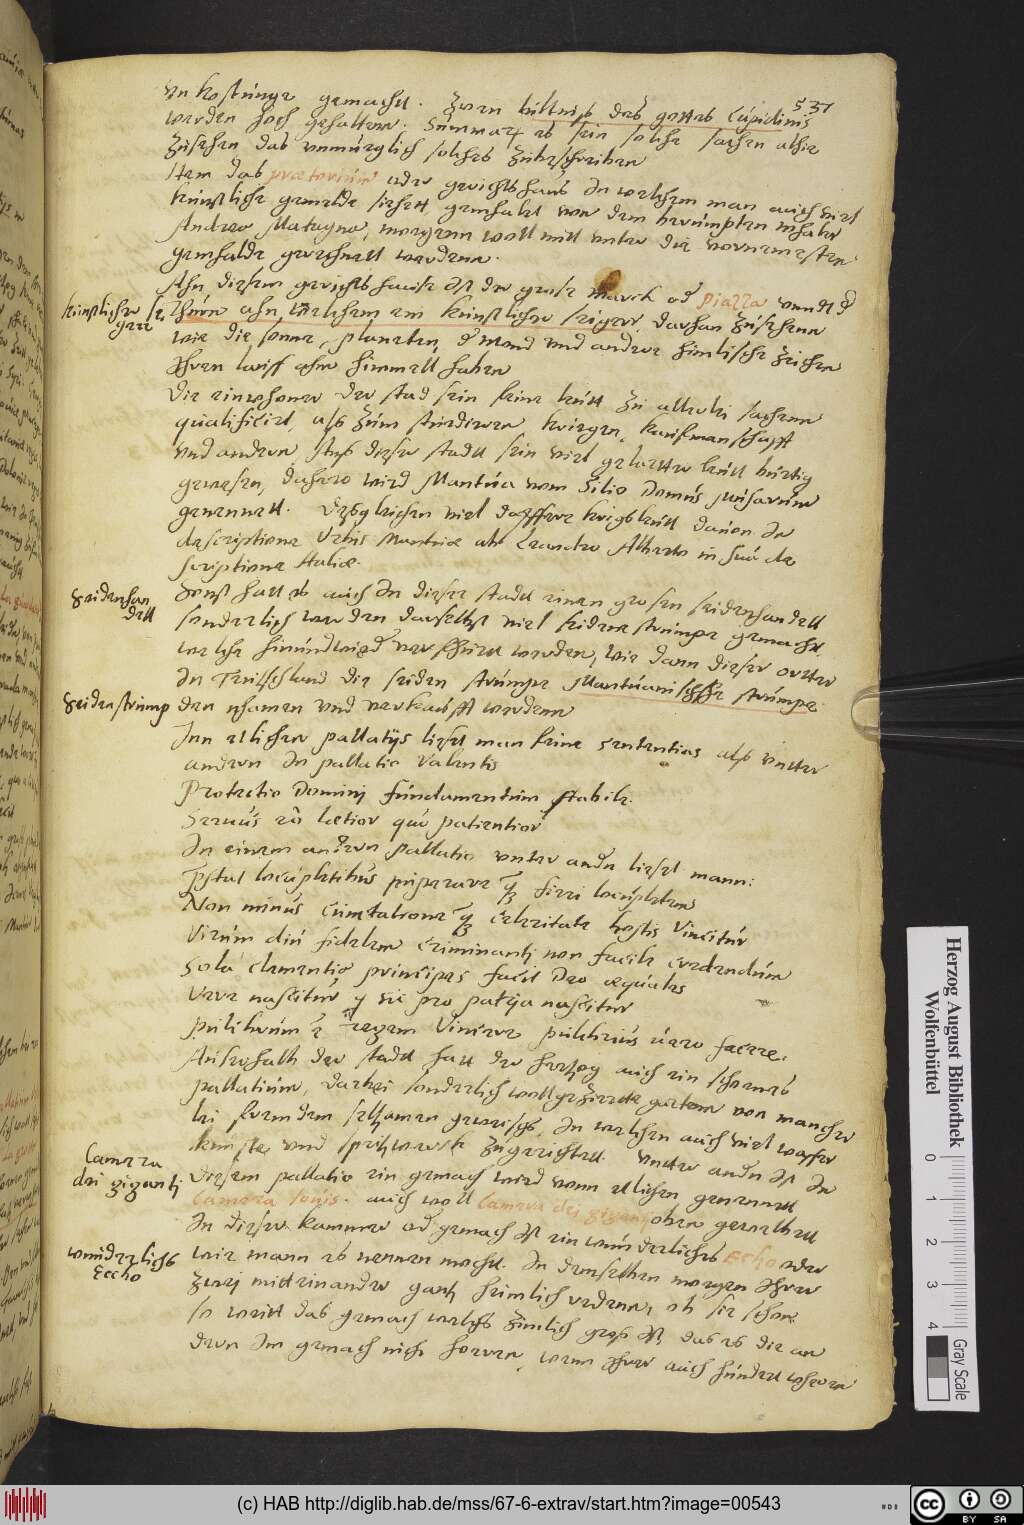 537
vnkostunge gemacht. Zwen biltnis des gottes Cupidinis
werden hoch gehalten. Summa es sein solche sachen alhie
Zusehen das vnmüglich solches Zubeschreiben
Item das praetorium oder gerichtshaus In welchem man auch viel
künstliche gemelde siehett gemhalet von dem berümpten mhaler
Andrea Mategna, mogenn woll mitt vnter die vornemesten
gemhalde gerechnett werdenn.
Ahn diesem gerichts hause ist der grose marck od Piazza vnndt d
künstlicher sei
gerr
Thürn ahn welchem ein künstlicher seiger, darhan Zusehenn
wie die sonne, planeten, d Mond vnd andere himlische Zeichen
Ihren lauff ahm himmell haben
Die einwhoner der stad sein feine leutt Zu allerlei sachenn
qualificirt, alss Zum studieren, kriegen, kaufmanschafft
vnd andern, Aus dieser stadtt sein viel gelertte leutt bürtig
gewesen, dahero wird Mantua vom Silio Domus musarum
genennett. Desgleichen viel dapffere krigsleutt dauon In
descriptione Vrbis Mantuae ab Leandro Alberto in sua de
scriptione Italiae.
Seidenhan
dell
Sonst hatt es auch In dieser stadtt einen grosen seidenhandell
sonderlich werden daselbst viel seidene strümpe gemacht,
welche hin und wied verschürt werden, wie dann dieser ortter
In Teutschland die seiden strümpe Mantuanische strümpe
Seidenstrump
den nhamen vnd verkaufft werdenn
Inn etlichen pallatijs liset man feine sententias alss vntter
andern In pallatio Valentis
Protectio Domini fundamentum stabile.
Seruus eo laetior quo patientior
In einem andern pallatio vnter andn lieset mann:
Prstat locupletibus imperare q fieri locupletem
Non minus cunctatione q celeritate hostis vincitur
Virum diu fidelem criminanti non facile credendum
Sola clementia principes facit Deo aequales
Vere nascitur q sic pro patria nascitur
Pulchrum e regem vincere pulchrius uero facere.
Auserhalb der stadtt hatt der hertzog auch ein schoenes
pallatium, darbei sonderlich wollgeZierette garten von mancher
lei frembdem seltzamen gewechs, In welchen auch viel wasser
künste vnd spritzwerck Zugerichtett. Vntter andn ist In
Camera
dei giganti
diesem pallatio ein gemach wird vonn etlichen genennett
Camera Iouis. auch woll Camera dei giganti oben gewelbett
In dieser kammer od gemach ist ein wunderliches Echo oder
wunderlichs
Eccho
wie mann es nennen mocht. In demselben mogen Ihrer
Zwej mitteinander gantz heimlich reden, ob sie schon
so weitt das gemach welchs Zimlich gros ist, das es die an
dern Im gemach nich horen, wenn Ihrer auch hundert wheren
Herzog August Bibliothek
Wolfenbüttel
0 1 2 3 4
Gray Scale
(c) HAB http://diglib.hab.de/mss/67-6-extrav/start.htm?image=00543
cc BY SA